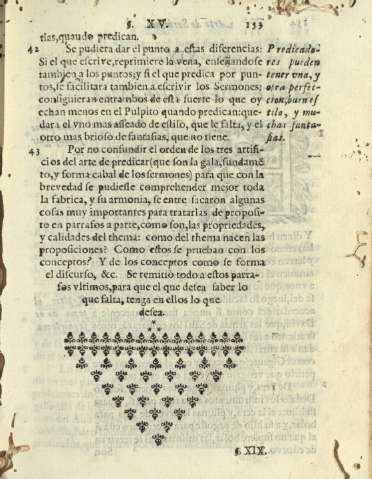 §. XV. 153
tias, quando predican.
42 Se pudiera dar el punto a estas diferencias:
Si el que escrive, reprimiere la vena, enseñandose
tambien a los puntos; y si el que predica por pun-
tos, se facilitara tambien a escrivir los Sermones;
consiguieran entrambos de esta suerte lo que oy
echan menos en el Pulpito quando predican: que-
dara el vno mas asseado de estilo, que le falta, y el
otro mas brioso de fantasias, que no tiene.
Predicado-
res pueden
tener vna, y
otra perfec-
cion, buen es
tilo, y mu-
chas fanta-
sias.
43 Por no confundir el orden de los tres artifi-
cios del arte de predicar (que son la gala, fundamē
to, y forma cabal de los sermones) para que con la
brevedad se pudiesse comprehender mejor toda
la fabrica, y su armonia, se entre sacaron algunas
cosas muy importantes para tratarlas de proposi-
to en parrafos a parte, como son, las propriedades,
y calidades del thema: como del thema nacen las
proposiciones? Como estos se prueban con los
conceptos? Y de los conceptos como se forma
el discurso, &c. Se remitió todo a estos parra-
fos vltimos, para que el que desea saber lo
que falta, tenga en ellos lo que
desea.
§ XIX.